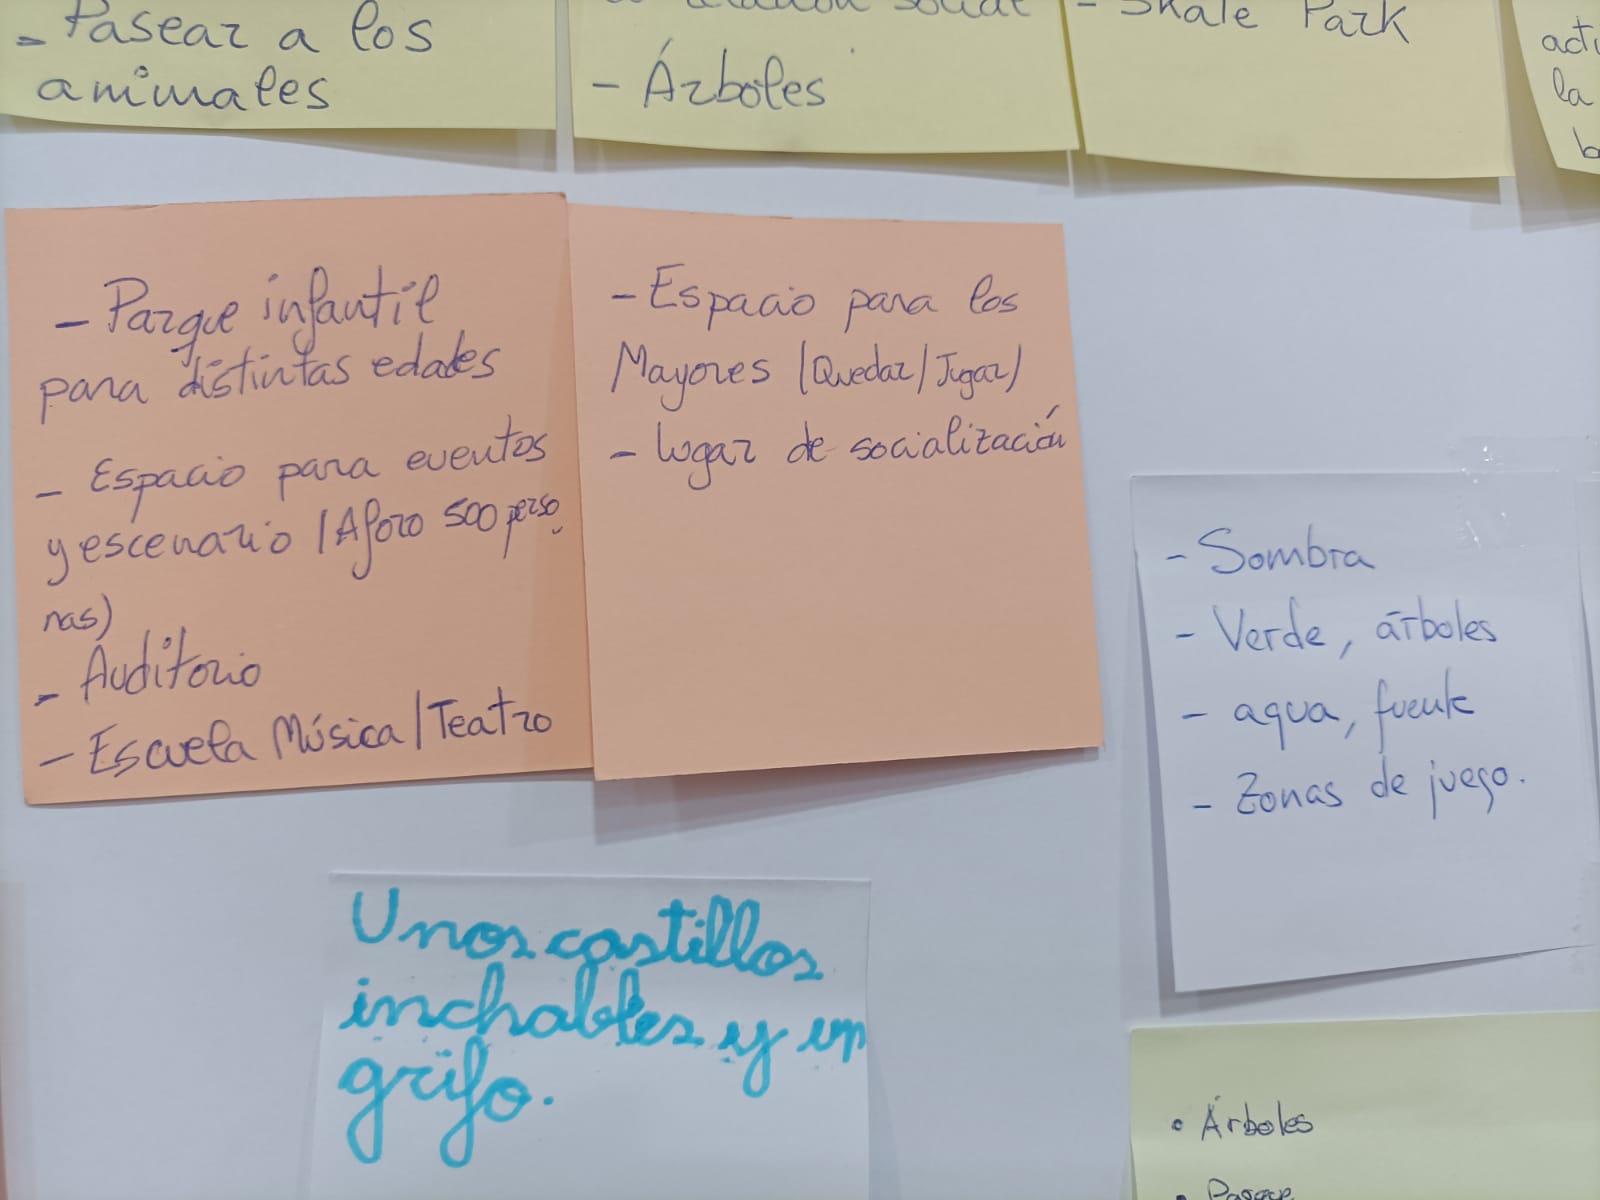 - Pasear a los
animales
relación social
- Árboles
- Skate Park
la
- Parque infantil
para distintas edades
- Espacio para eventos
y escenario (Aforo 500 perso
nas)
- Auditorio
- Escuela Música/Teatro
- Espacio para los
Mayores (Quedar/Jugar)
- lugar de socialización
- Sombra
- Verde, árboles
- agua, fuente
- Zonas de juego.
Unos castillos
inchables y un
grifo.
• Árboles
• Parque